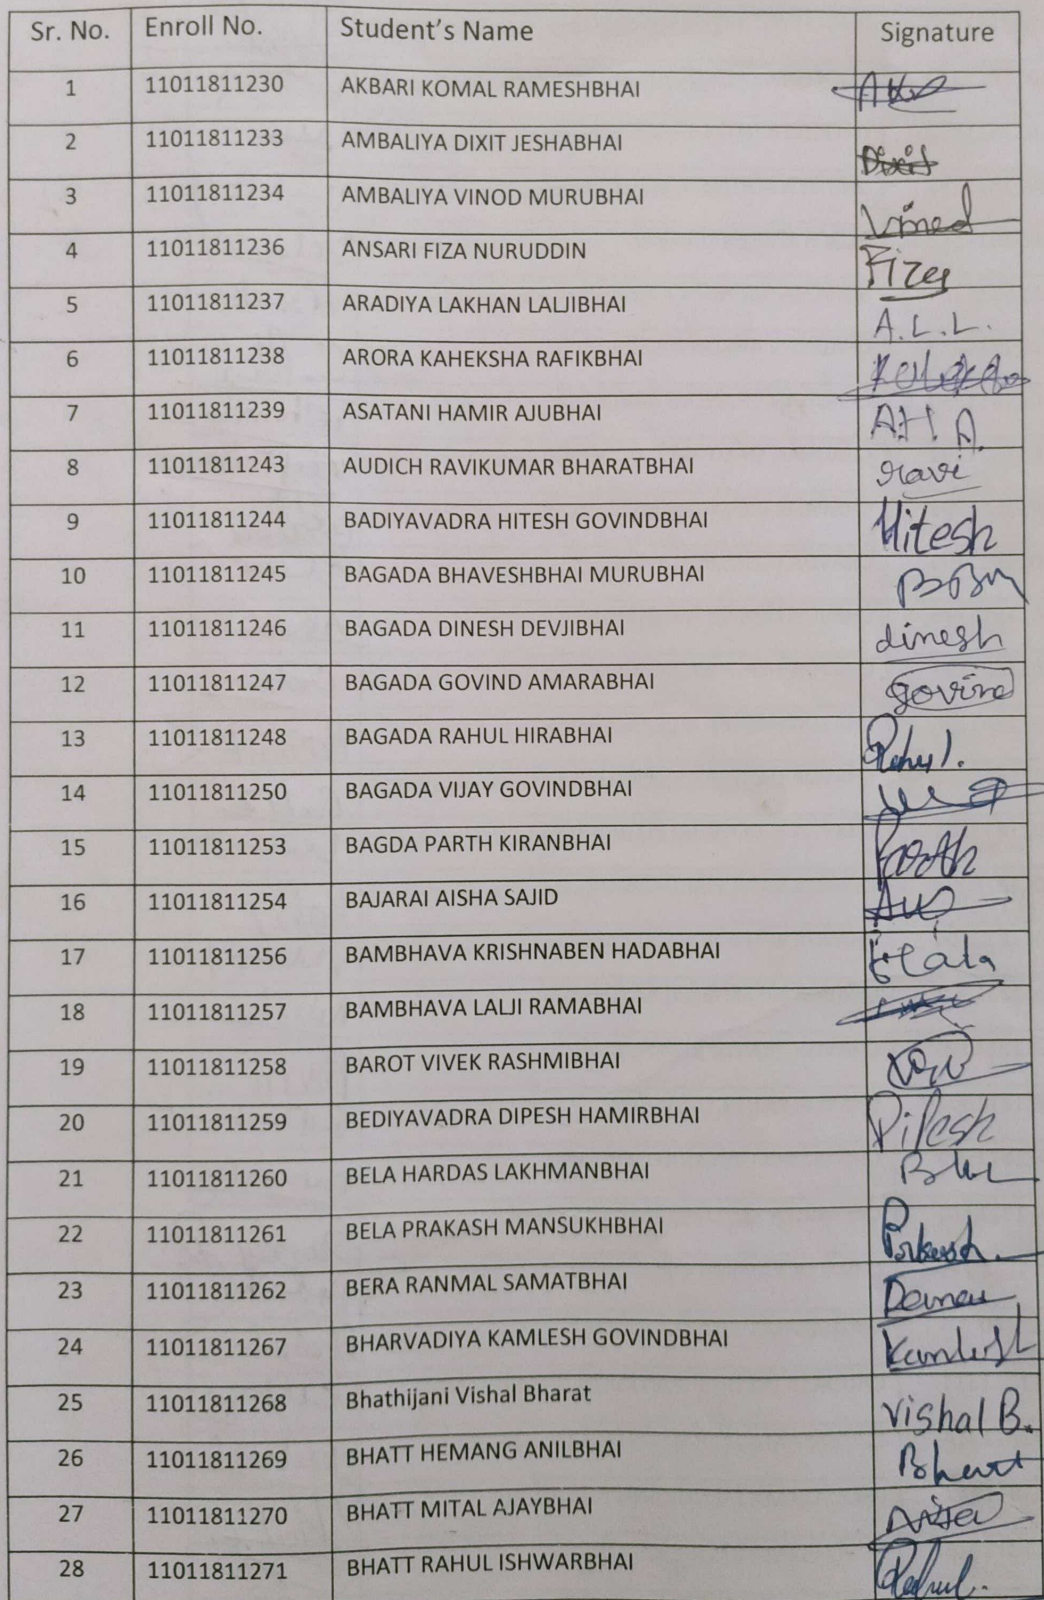 Sr. No. Enroll No. Student's Name Signature
1 11011811230 AKBARI KOMAL RAMESHBHAI
2 11011811233 AMBALIYA DIXIT JESHABHAI Dixit
3 11011811234 AMBALIYA VINOD MURUBHAI Vinod
4 11011811236 ANSARI FIZA NURUDDIN
5 11011811237 ARADIYA LAKHAN LALJIBHAI A.L.L.
6 11011811238 ARORA KAHEKSHA RAFIKBHAI
7 11011811239 ASATANI HAMIR AJUBHAI A.H.A.
8 11011811243 AUDICH RAVIKUMAR BHARATBHAI ravi
9 11011811244 BADIYAVADRA HITESH GOVINDBHAI Hitesh
10 11011811245 BAGADA BHAVESHBHAI MURUBHAI
11 11011811246 BAGADA DINESH DEVJIBHAI dinesh
12 11011811247 BAGADA GOVIND AMARABHAI govind
13 11011811248 BAGADA RAHUL HIRABHAI Rahul.
14 11011811250 BAGADA VIJAY GOVINDBHAI
15 11011811253 BAGDA PARTH KIRANBHAI Parth
16 11011811254 BAJARAI AISHA SAJID
17 11011811256 BAMBHAVA KRISHNABEN HADABHAI
18 11011811257 BAMBHAVA LALJI RAMABHAI
19 11011811258 BAROT VIVEK RASHMIBHAI
20 11011811259 BEDIYAVADRA DIPESH HAMIRBHAI Dipesh
21 11011811260 BELA HARDAS LAKHMANBHAI
22 11011811261 BELA PRAKASH MANSUKHBHAI
23 11011811262 BERA RANMAL SAMATBHAI
24 11011811267 BHARVADIYA KAMLESH GOVINDBHAI Kamlesh
25 11011811268 Bhathijani Vishal Bharat Vishal B.
26 11011811269 BHATT HEMANG ANILBHAI Bhatt
27 11011811270 BHATT MITAL AJAYBHAI
28 11011811271 BHATT RAHUL ISHWARBHAI Rahul.